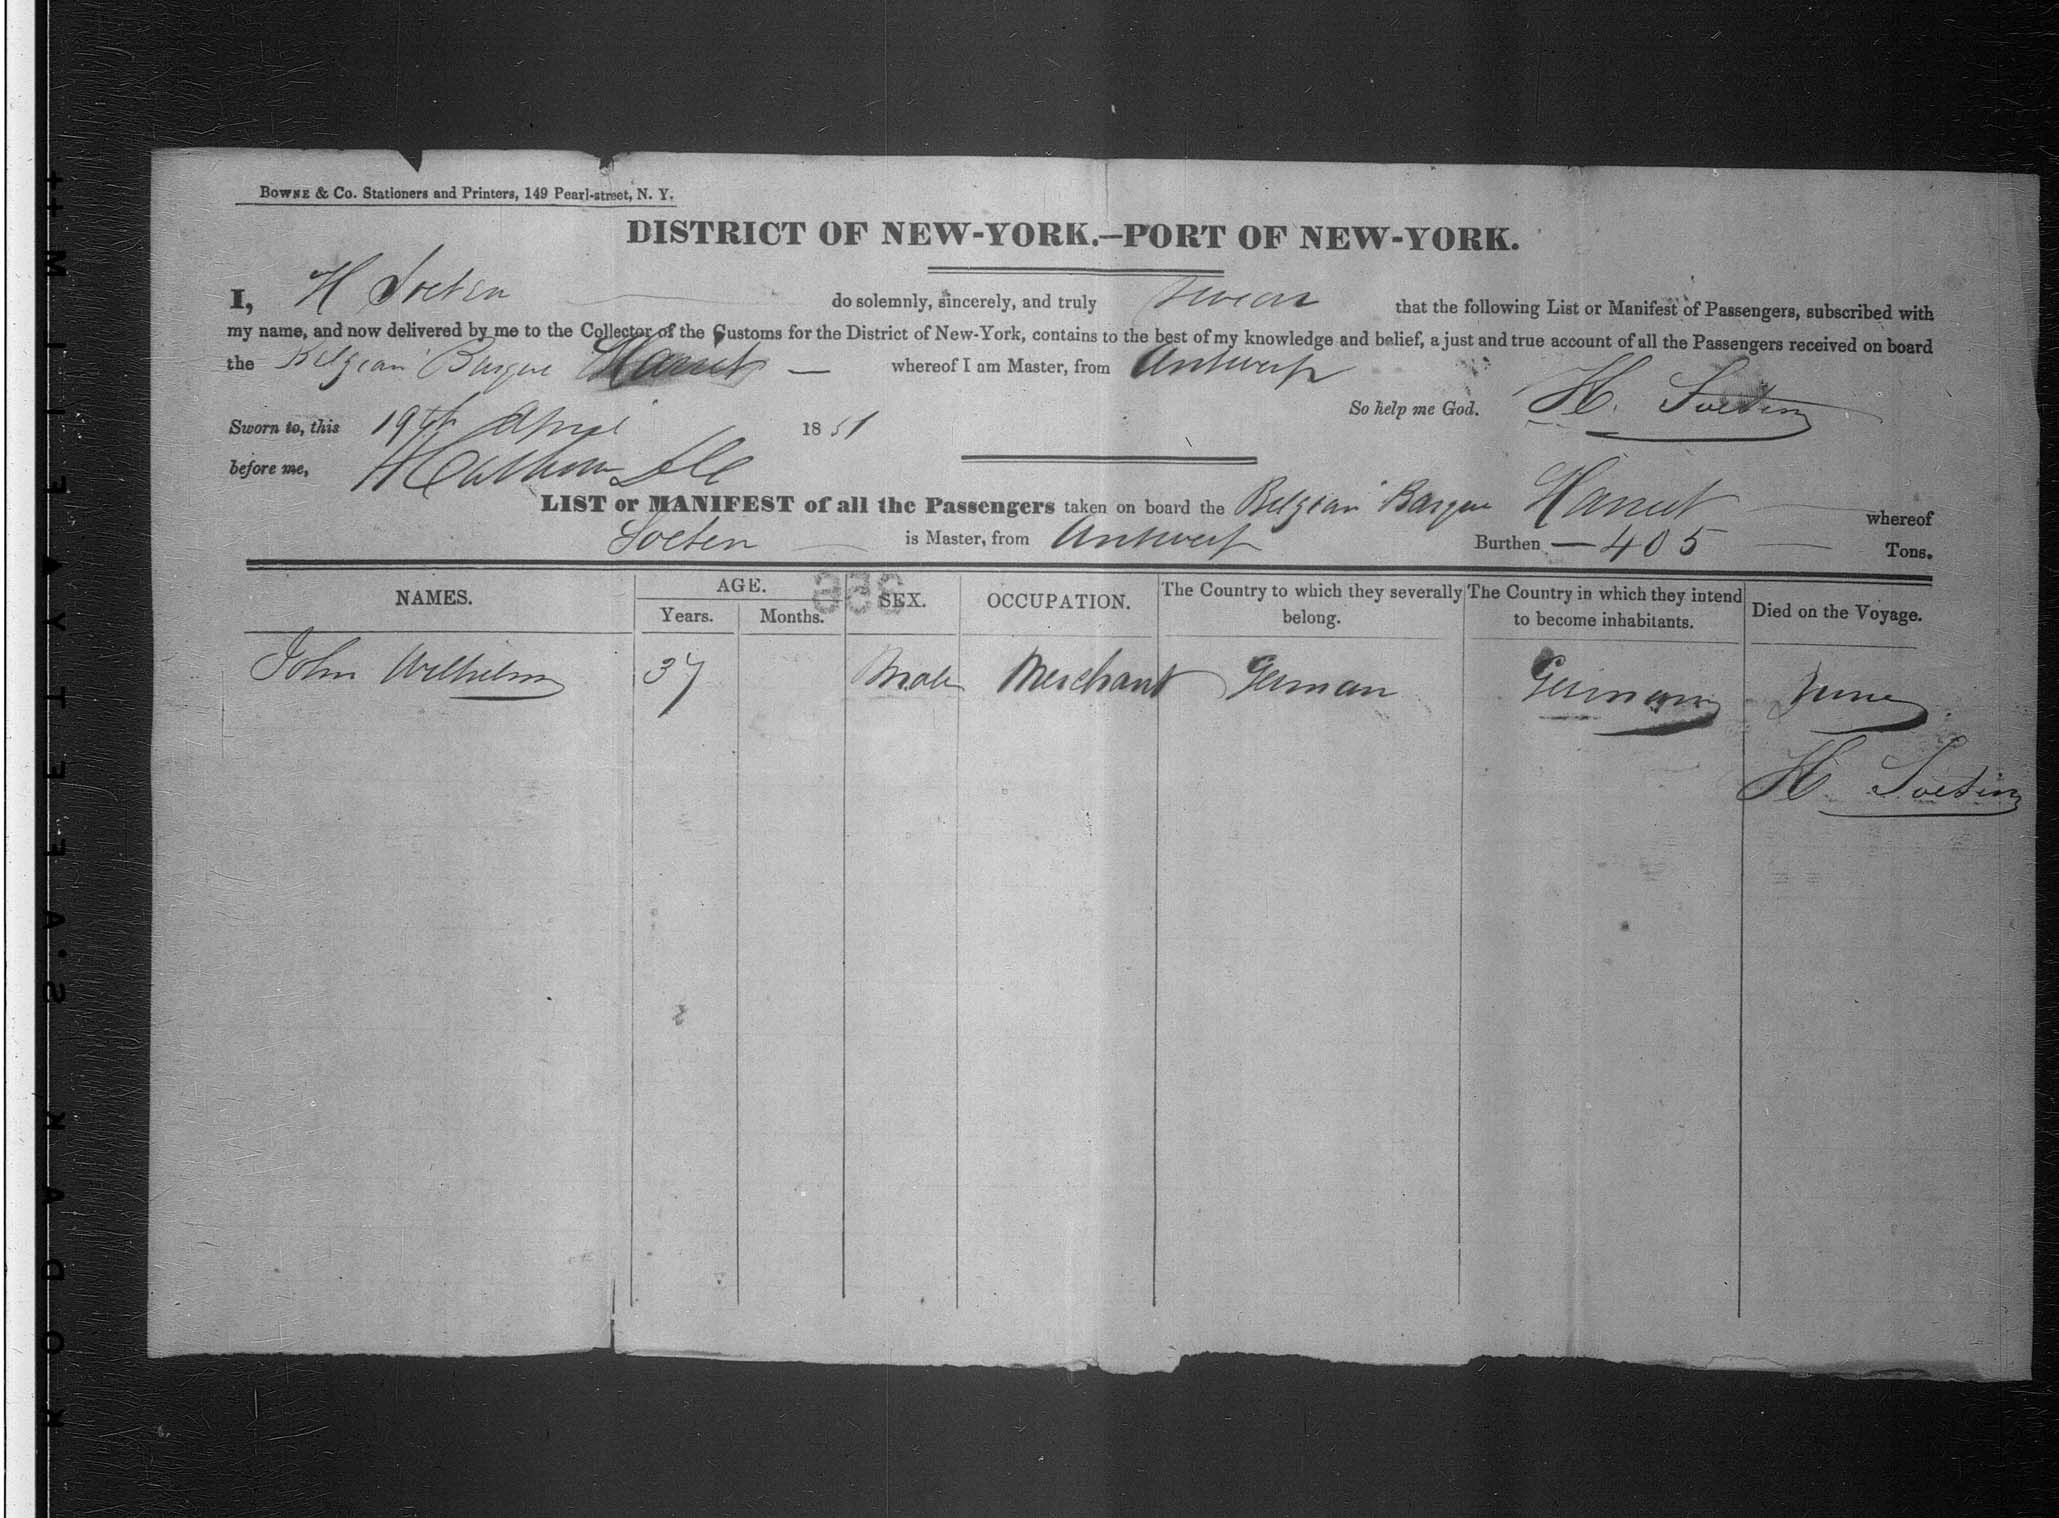 BOWNE & CO. Stationers and Printers, 149 Pearl-street, N. Y.
DISTRICT OF NEW-YORK.—PORT OF NEW-YORK.
I, H Soeten do solemnly, sincerely, and truly swear that the following List or Manifest of Passengers, subscribed with
my name, and now delivered by me to the Collector of the Customs for the District of New-York, contains to the best of my knowledge and belief, a just and true account of all the Passengers received on board
the Belgian Barque whereof I am Master, from Antwerp
So help me God. H. Soeten
Sworn to, this 19th April 1851
before me,
LIST or MANIFEST of all the Passengers taken on board the Belgian Barque whereof
Soeten is Master, from Antwerp Burthen — 405 — Tons.
NAMES. AGE. SEX. OCCUPATION. The Country to which they severally belong. The Country in which they intend to become inhabitants. Died on the Voyage.
Years. Months.
John Wilhelm 37 Male Merchant German
H. Soeten